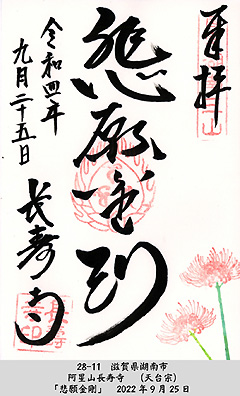 奉拝
悲願金剛
令和四年
九月二十五日
長寿寺
28-11 滋賀県湖南市
阿星山長寿寺 (天台宗)
「悲願金剛」 2022年9月25日